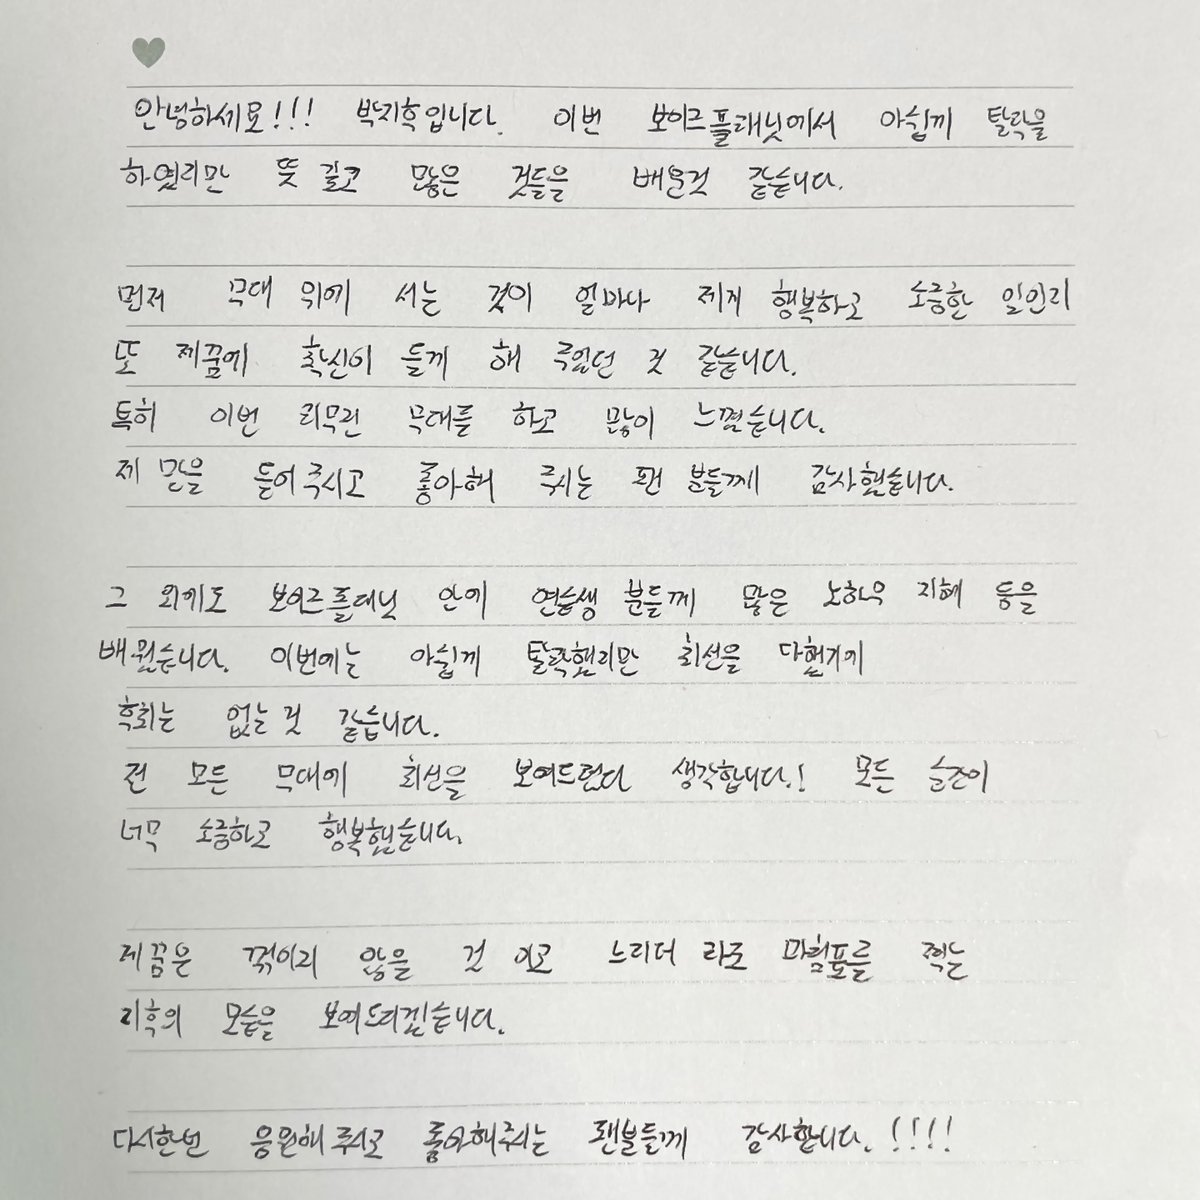 안녕하세요!!! 박지후입니다. 이번 보이즈플래닛에서 아쉽게 탈락을
하였지만 뜻 깊고 많은 것들을 배운것 같습니다.
먼저 무대 위에 서는 것이 얼마나 제게 행복하고 소중한 일인지
또 제꿈에 확신이 들게 해 주었던 것 같습니다.
특히 이번 마무리 무대를 하고 많이 느꼈습니다.
제 말을 들어주시고 좋아해 주시는 팬 분들께 감사했습니다.
그 외에도 보이즈플래닛 안에 연습생 분들께 많은 노하우 지혜 등을
배웠습니다. 이번에는 아쉽게 탈락했지만 최선을 다했기에
후회는 없는 것 같습니다.
전 모든 무대에 최선을 보여드렸다 생각합니다.! 모든 순간이
너무 소중하고 행복했습니다.
제꿈은 꺾이지 않을 것 이고 느리더 라도 마침표를 찍는
지후의 모습을 보여드리겠습니다.
다시한번 응원해주시고 좋아해주시는 팬분들께 감사합니다.!!!!